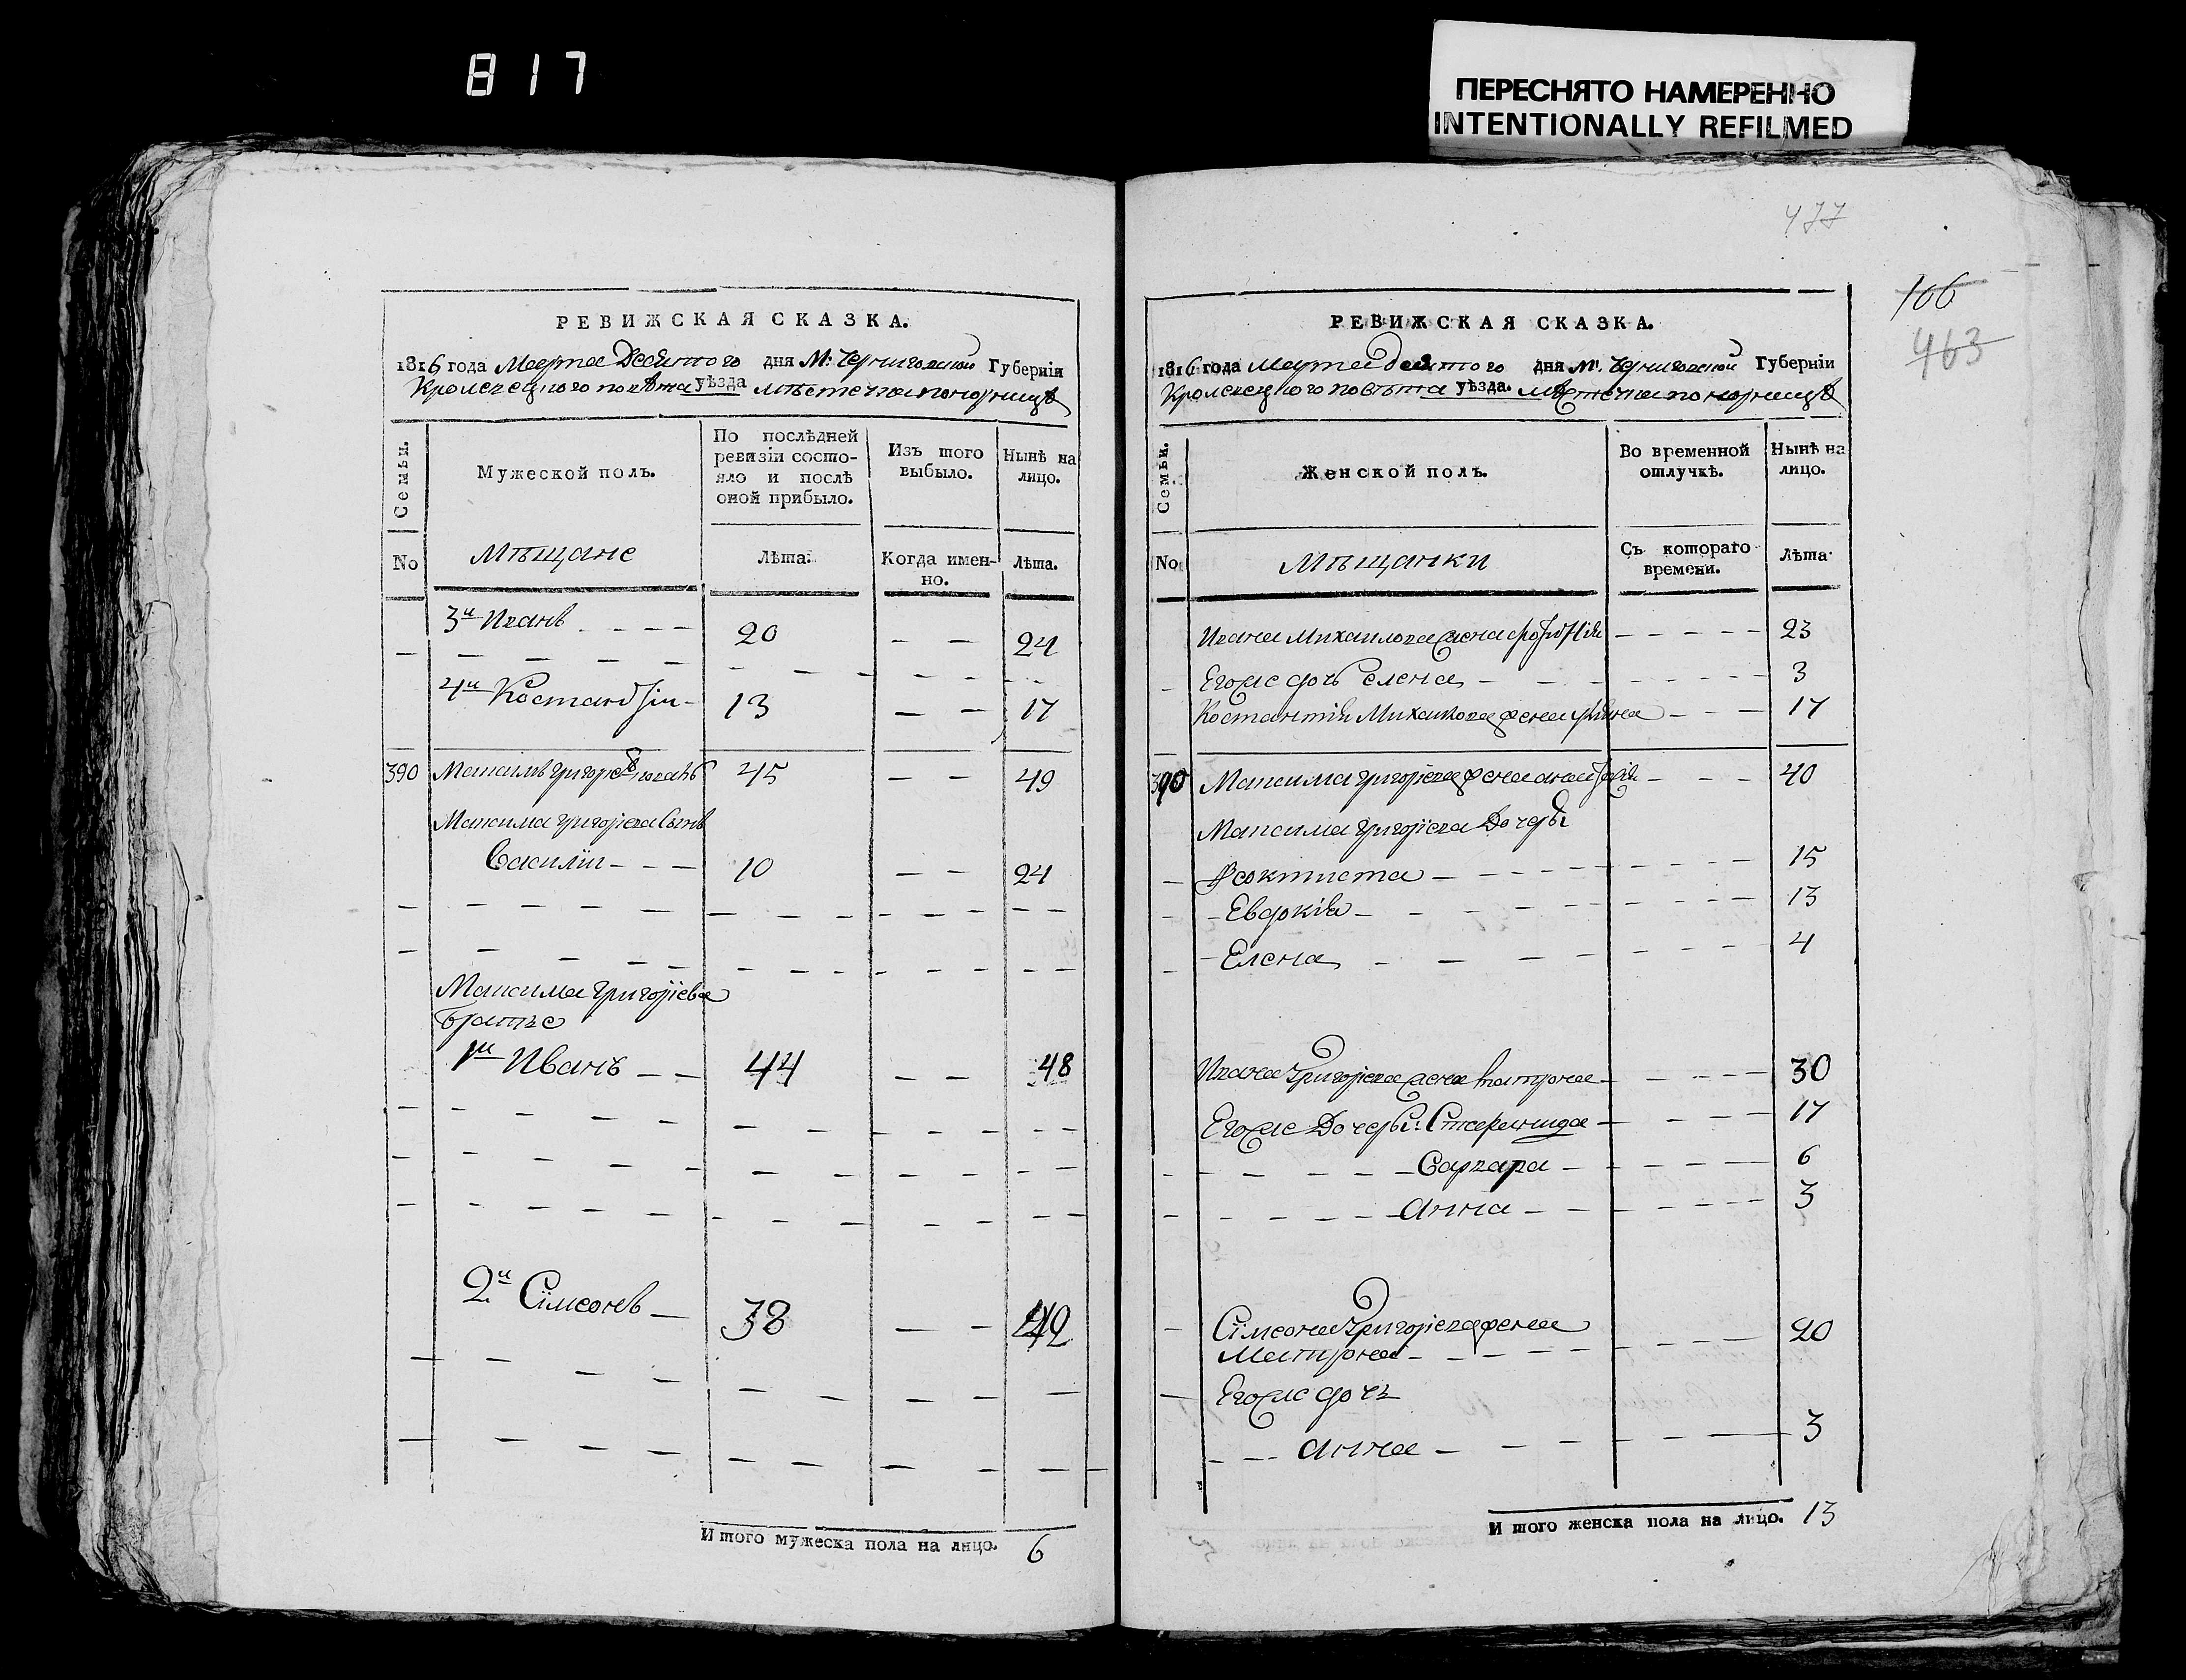 817
ПЕРЕСНЯТО НАМЕРЕННО
INTENTIONALLY REFILMED
477
106
463
РЕВИЖСКАЯ СКАЗКА.
1816 года Марта Десятого дня М: Черниговской Губернія
Кролевецкого повѣта уѣзда мѣстечка понорницѣ
Семьи.
Мужеской полъ.
По послѣдней ревизіи состояло и послѣ оной прибыло.
Изъ того выбыло.
Нынѣ на лицо.
No
Мѣщане
Лѣта.
Когда именно.
Лѣта.
3й Иванъ 20 — — 24
4й Костантін 13 — — 17
390 Максимъ григорієвъ 45 — — 49
Максима григорієва Сынъ
Василій 10 — — 24
Максима григоріева
Братье
1й Иванъ 44 — — 48
2й Сімеонъ 38 — — 42
Итого мужеска пола на лицо. 6
РЕВИЖСКАЯ СКАЗКА.
1816 года марта десятого дня М. Черниговской Губерніи
Кролевецкого повѣта уѣзда. мѣстечка понорницѣ
Семьи.
Женской полъ.
Во временной отлучкѣ.
Нынѣ на лицо.
No
Мѣщанки
Съ котораго времени.
Лѣта
Ивана Михаилова жена 23
Егоже дочь елена 3
Костантія Михаилова жена 17
390 Максима григорієва жена анастасія 40
Максима григорієва Дочеры
Феоктиста 15
Евдокія 13
Елена 4
Ивана Григорієва жена катрона 30
Егоже Дочеры: 17
Варвара 6
Анна 3
Сімеона Григорієва жена 20
Матрона
Егоже дочь
анна 3
Итого женска пола на лицо. 13